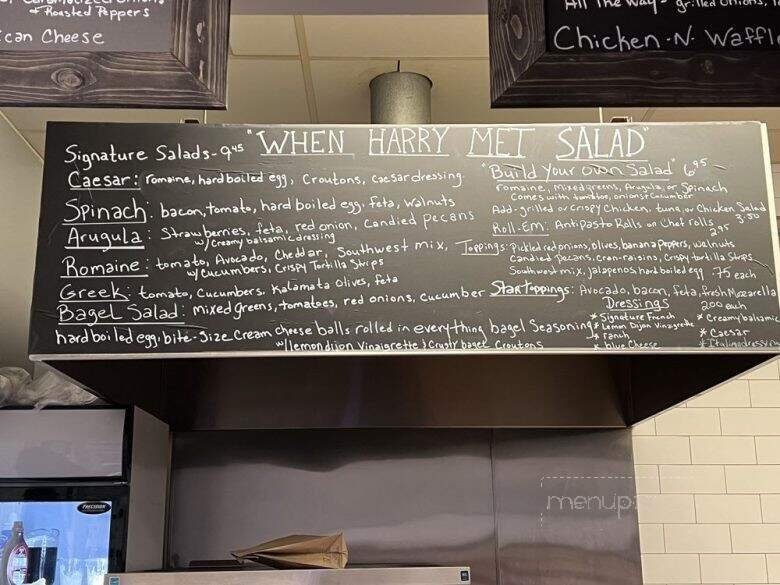 + Roasted Peppers
can Cheese
All The Way - grilled onions,
Chicken -N- Waffle
"WHEN HARRY MET SALAD"
Signature Salads - 9.45
Caesar: romaine, hard boiled egg, Croutons, caesar dressing.
Spinach: bacon, tomato, hard boiled egg, feta, walnuts
Arugula: Strawberries, feta, red onion, candied pecans
w/ creamy balsamic dressing
Romaine: tomato, Avocado, Cheddar, Southwest mix,
w/ cucumbers, Crispy Tortilla Strips
Greek: tomato, Cucumbers, Kalamata olives, feta
Bagel Salad: mixed greens, tomatoes, red onions, cucumber
hard boiled egg, bite-size Cream Cheese balls rolled in everything bagel Seasoning
w/ lemon dijon vinaigrette & Crusty bagel Croutons
"Build Your Own Salad" 6.95
romaine, mixed greens, Arugula, or Spinach
Comes with tomatoes, onions & cucumber
Add - grilled or crispy Chicken, tuna, or Chicken Salad
3.50
Roll-Em: Antipasto Rolls or Chef rolls
2.95
Toppings: Pickled red onions, olives, banana Peppers, walnuts
Candied pecans, cran-raisins, crispy tortilla Strips
Southwest mix, jalapenos hard boiled egg .75 each
Star toppings: Avocado, bacon, feta, fresh Mozzarella
2.00 each
Dressings
* Signature French
* Lemon Dijon Vinaigrette
* ranch
* blue Cheese
* Creamy balsamic
* Caesar
* Italian dressing
PRECISION
menup